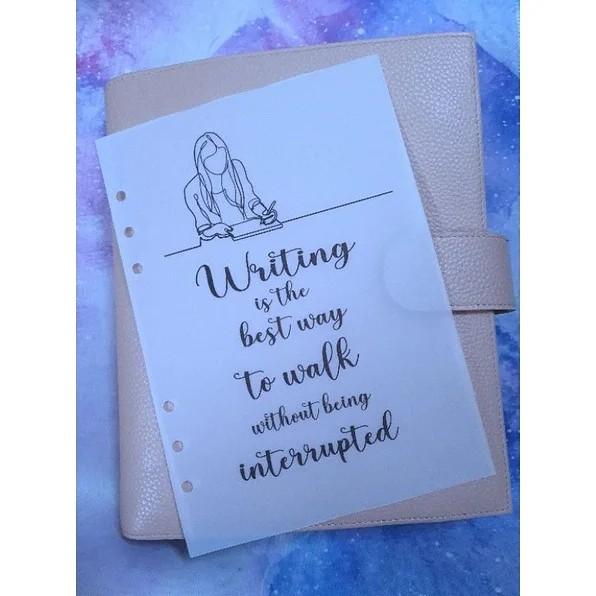 Writing
is the
best way
to walk
without being
interrupted